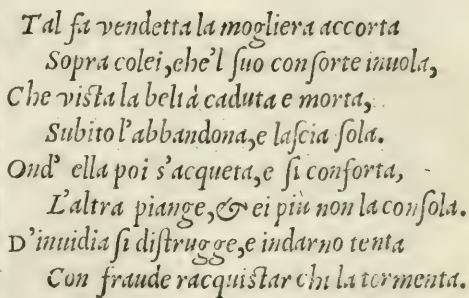 Tal fa vendetta la mogliera accorta
Sopra colei, che'l ſuo conſorte inuola,
Che viſta la beltà caduta e morta,
Subito l'abbandona, e laſcia ſola.
Ond' ella poi s'acqueta, e ſi conforta,
L'altra piange, & ei più non la conſola.
D'inuidia ſi diſtrugge, e indarno tenta
Con fraude racquiſtar chi la tormenta.